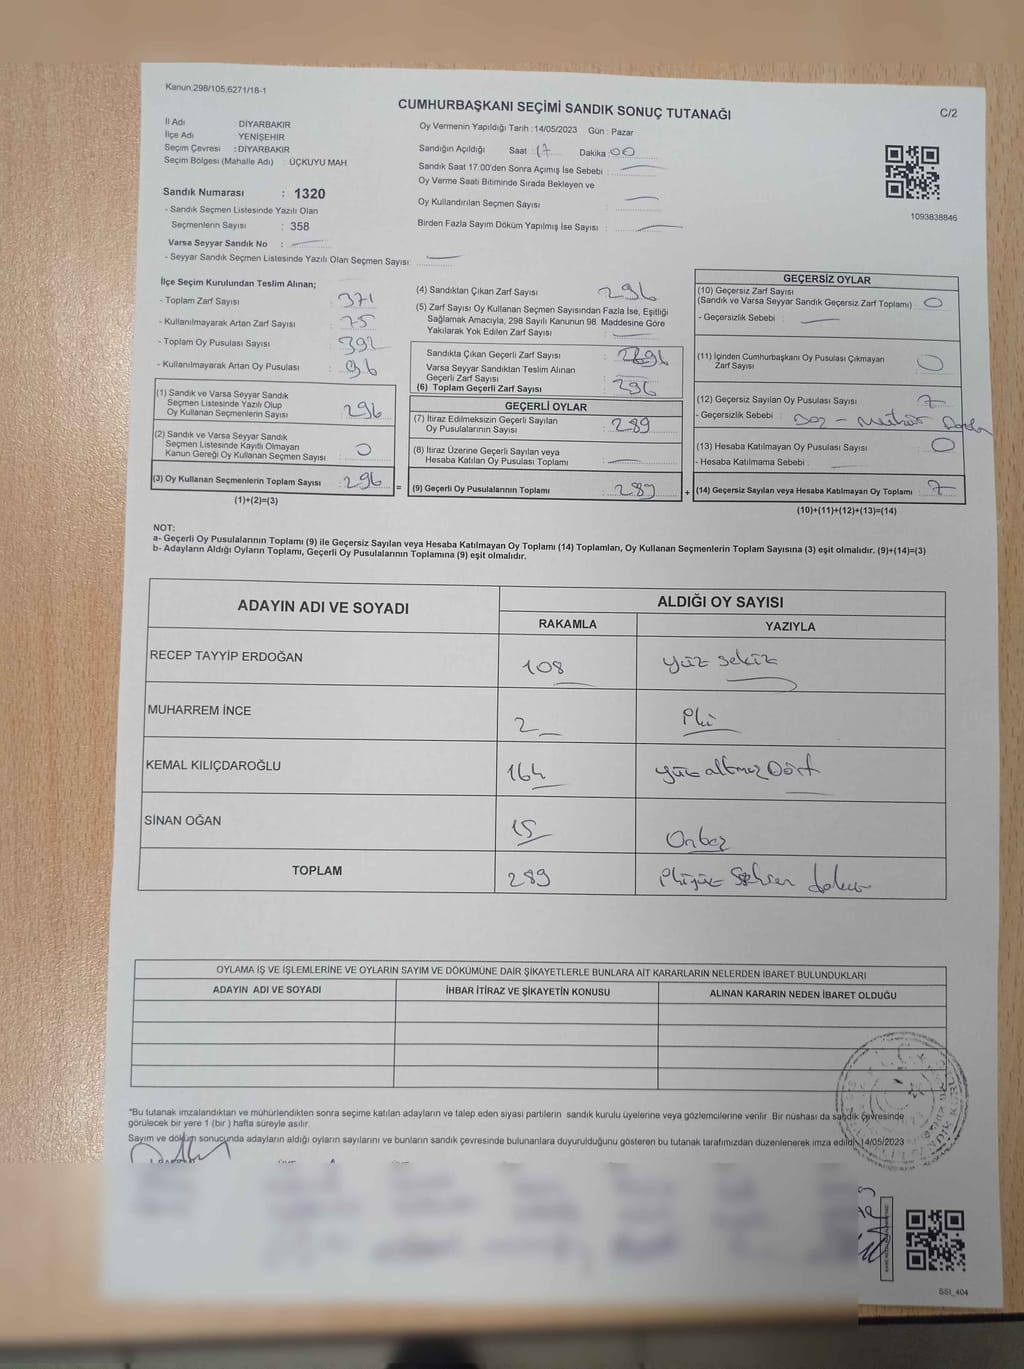 Kanun:298/105,6271/18-1
CUMHURBAŞKANI SEÇİMİ SANDIK SONUÇ TUTANAĞI
C/2
İl Adı : DİYARBAKIR
İlçe Adı : YENİŞEHİR
Seçim Çevresi : DİYARBAKIR
Seçim Bölgesi (Mahalle Adı) : ÜÇKUYU MAH
Oy Vermenin Yapıldığı Tarih : 14/05/2023 Gün : Pazar
Sandığın Açıldığı Saat 17 Dakika 00
Sandık Saat 17:00'den Sonra Açımış İse Sebebi :
Oy Verme Saati Bitiminde Sırada Bekleyen ve
Oy Kullandırılan Seçmen Sayısı :
Birden Fazla Sayım Döküm Yapılmış İse Sayısı :
1093838846
Sandık Numarası : 1320
- Sandık Seçmen Listesinde Yazılı Olan
Seçmenlerin Sayısı : 358
Varsa Seyyar Sandık No :
- Seyyar Sandık Seçmen Listesinde Yazılı Olan Seçmen Sayısı:
İlçe Seçim Kurulundan Teslim Alınan;
- Toplam Zarf Sayısı : 371
- Kullanılmayarak Artan Zarf Sayısı : 75
- Toplam Oy Pusulası Sayısı : 392
- Kullanılmayarak Artan Oy Pusulası : 96
(1) Sandık ve Varsa Seyyar Sandık
Seçmen Listesinde Yazılı Olup
Oy Kullanan Seçmenlerin Sayısı : 296
(2) Sandık ve Varsa Seyyar Sandık
Seçmen Listesinde Kayıtlı Olmayan
Kanun Gereği Oy Kullanan Seçmen Sayısı : 0
(3) Oy Kullanan Seçmenlerin Toplam Sayısı : 296
(1)+(2)=(3)
(4) Sandıktan Çıkan Zarf Sayısı : 296
(5) Zarf Sayısı Oy Kullanan Seçmen Sayısından Fazla İse, Eşitliği
Sağlamak Amacıyla, 298 Sayılı Kanunun 98. Maddesine Göre
Yakılarak Yok Edilen Zarf Sayısı :
Sandıkta Çıkan Geçerli Zarf Sayısı : 296
Varsa Seyyar Sandıktan Teslim Alınan
Geçerli Zarf Sayısı :
(6) Toplam Geçerli Zarf Sayısı : 296
GEÇERLİ OYLAR
(7) İtiraz Edilmeksizin Geçerli Sayılan
Oy Pusulalarının Sayısı : 289
(8) İtiraz Üzerine Geçerli Sayılan veya
Hesaba Katılan Oy Pusulası Toplamı :
= (9) Geçerli Oy Pusulalarının Toplamı : 289 +
GEÇERSİZ OYLAR
(10) Geçersiz Zarf Sayısı
(Sandık ve Varsa Seyyar Sandık Geçersiz Zarf Toplamı) : 0
- Geçersizlik Sebebi :
(11) İçinden Cumhurbaşkanı Oy Pusulası Çıkmayan
Zarf Sayısı : 0
(12) Geçersiz Sayılan Oy Pusulası Sayısı : 7
- Geçersizlik Sebebi :
(13) Hesaba Katılmayan Oy Pusulası Sayısı : 0
- Hesaba Katılmama Sebebi :
(14) Geçersiz Sayılan veya Hesaba Katılmayan Oy Toplamı : 7
(10)+(11)+(12)+(13)=(14)
NOT:
a- Geçerli Oy Pusulalarının Toplamı (9) ile Geçersiz Sayılan veya Hesaba Katılmayan Oy Toplamı (14) Toplamları, Oy Kullanan Seçmenlerin Toplam Sayısına (3) eşit olmalıdır. (9)+(14)=(3)
b- Adayların Aldığı Oyların Toplamı, Geçerli Oy Pusulalarının Toplamına (9) eşit olmalıdır.
ADAYIN ADI VE SOYADI
ALDIĞI OY SAYISI
RAKAMLA YAZIYLA
RECEP TAYYİP ERDOĞAN 108 yüz sekiz
MUHARREM İNCE 2 iki
KEMAL KILIÇDAROĞLU 164 yüz altmış Dört
SİNAN OĞAN 15 Onbeş
TOPLAM 289 ikiyüz seksen dokuz
OYLAMA İŞ VE İŞLEMLERİNE VE OYLARIN SAYIM VE DÖKÜMÜNE DAİR ŞİKAYETLERLE BUNLARA AİT KARARLARIN NELERDEN İBARET BULUNDUKLARI
ADAYIN ADI VE SOYADI İHBAR İTİRAZ VE ŞİKAYETİN KONUSU ALINAN KARARIN NEDEN İBARET OLDUĞU
*Bu tutanak imzalandıktan ve mühürlendikten sonra seçime katılan adayların ve talep eden siyasi partilerin sandık kurulu üyelerine veya gözlemcilerine verilir. Bir nüshası da sandık çevresinde
görülecek bir yere 1 (bir ) hafta süreyle asılır.
Sayım ve döküm sonucunda adayların aldığı oyların sayılarını ve bunların sandık çevresinde bulunanlara duyurulduğunu gösteren bu tutanak tarafımızdan düzenlenerek imza edildi. 14/05/2023
SSI_404